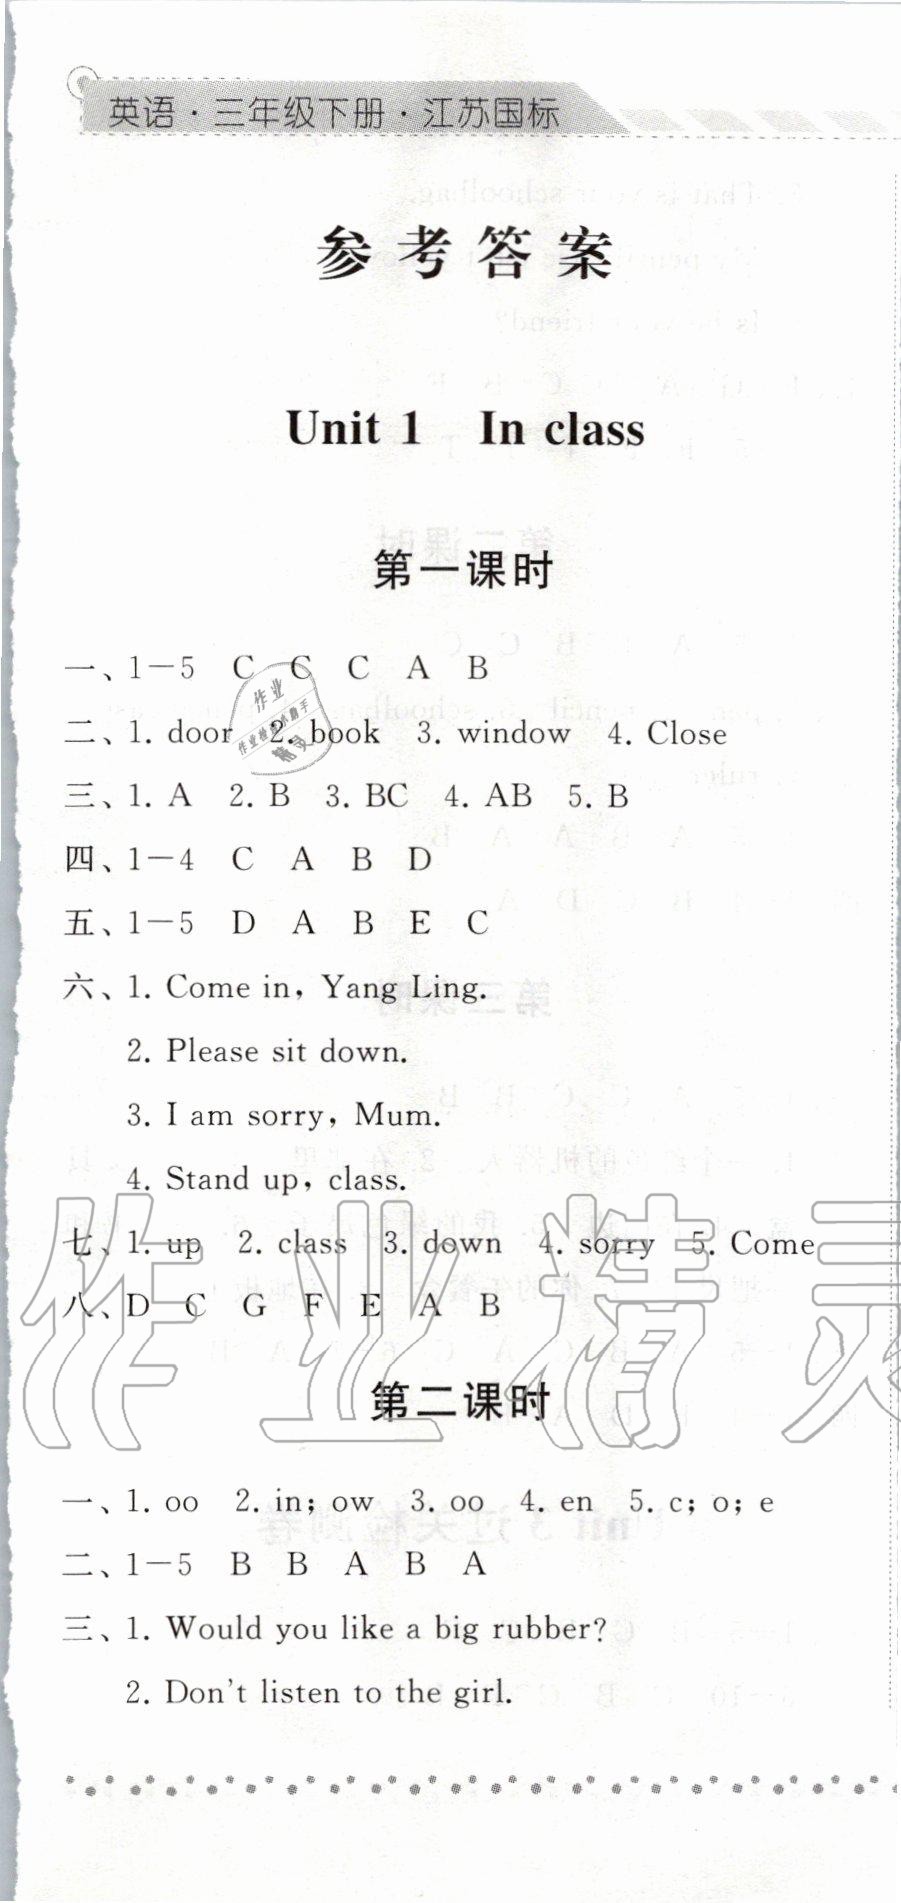 英语·三年级下册·江苏国标
参考答案
Unit 1 In class
第一课时
一、1—5 C C C A B
二、1. door 2. book 3. window 4. Close
三、1. A 2. B 3. BC 4. AB 5. B
四、1—4 C A B D
五、1—5 D A B E C
六、1. Come in, Yang Ling.
2. Please sit down.
3. I am sorry, Mum.
4. Stand up, class.
七、1. up 2. class 3. down 4. sorry 5. Come
八、D C G F E A B
第二课时
一、1. oo 2. in; ow 3. oo 4. en 5. c; o; e
二、1—5 B B A B A
三、1. Would you like a big rubber?
2. Don't listen to the girl.
作业精灵
作业
作业检查小助手
精灵